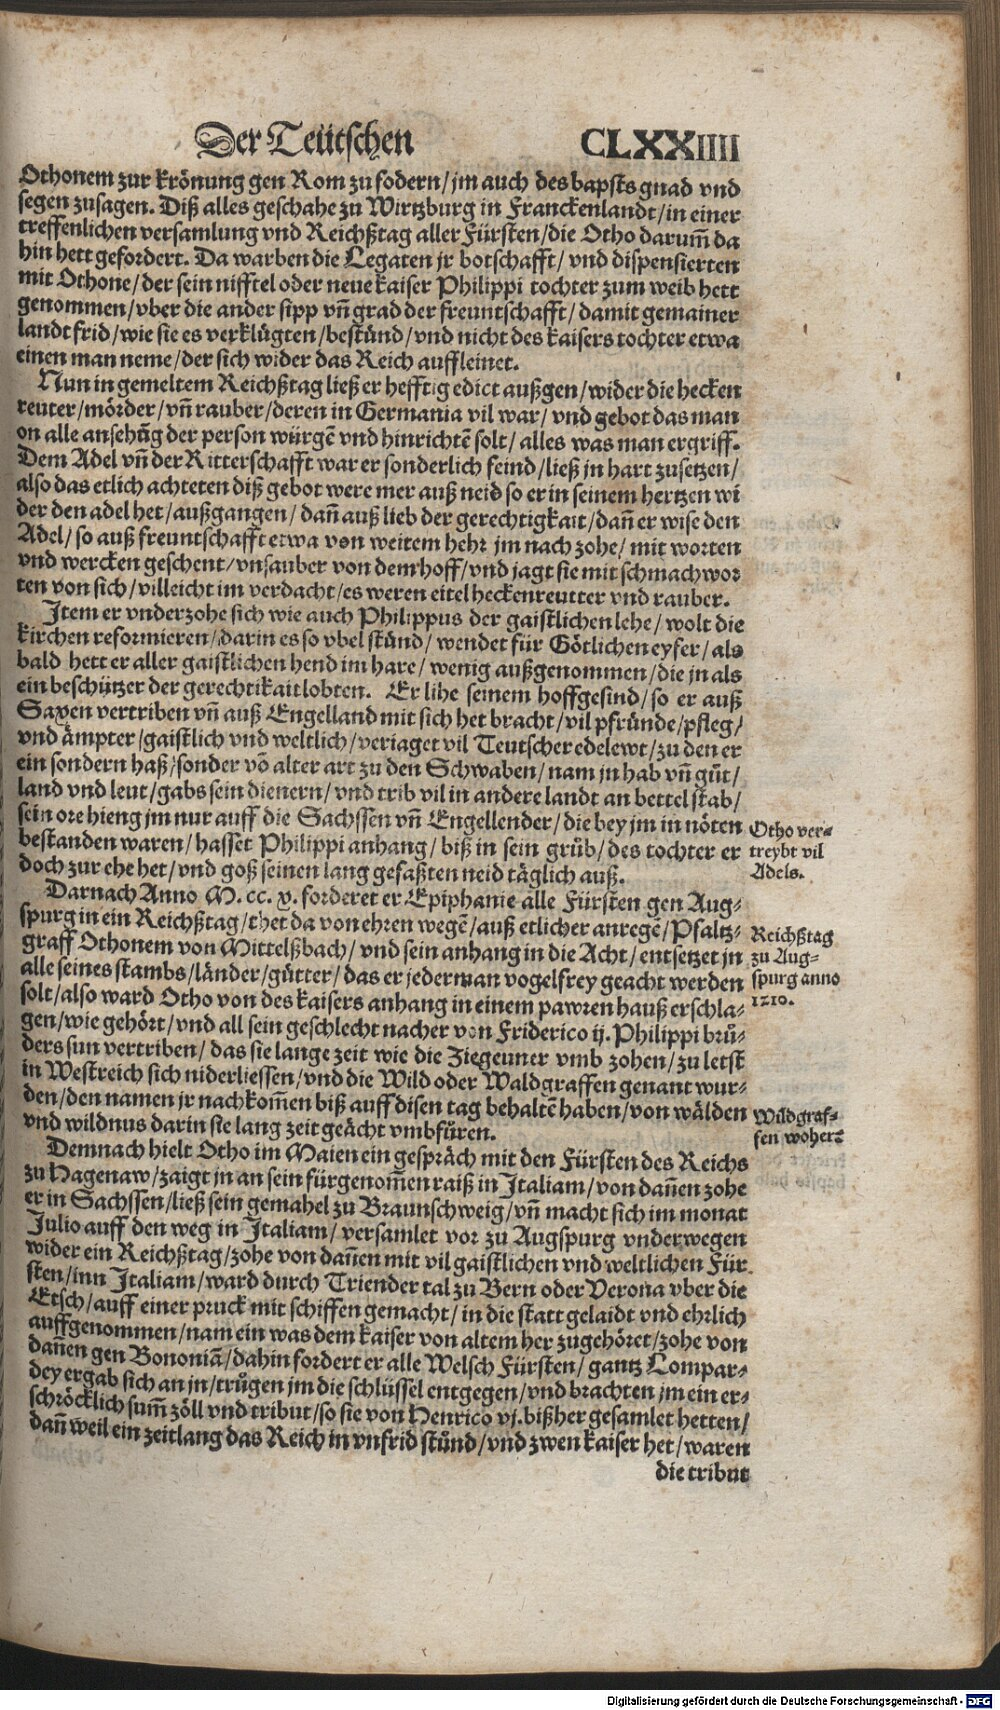 Der Teütschen CLXXIIII
Othonem zur krönung gen Rom zu fodern/jm auch des bapsts gnad vnd
segen zusagen. Diß alles geschahe zu Wirtzburg in Franckenlandt/in einer
treffenlichen versamlung vnd Reichßtag aller Fürsten/die Otho darum̃ da
hin hett gefordert. Da warben die Legaten jr botschafft/vnd dispensierten
mit Othone/der sein nifftel oder neue kaiser Philippi tochter zum weib hett
genommen/vber die ander sipp vñ grad der freuntschafft/damit gemainer
landtfrid/wie sie es verklůgten/bestünd/vnd nicht des kaisers tochter etwa
einen man neme/der sich wider das Reich auffleinet.
Nun in gemeltem Reichßtag ließ er hefftig edict außgen/wider die hecken
reuter/mörder/vñ rauber/deren in Germania vil war/vnd gebot das man
on alle ansehũg der person würgẽ vnd hinrichtẽ solt/alles was man ergriff.
Dem Adel vñ der Ritterschafft war er sonderlich feind/ließ jn hart zusetzen/
also das etlich achteten diß gebot were mer auß neid so er in seinem hertzen wi
der den adel het/außgangen/dañ auß lieb der gerechtigkait/dañ er wise den
Adel/so auß freuntschafft etwa von weitem hehr jm nach zohe/mit worten
vnd wercken geschent/vnsauber von dem hoff/vnd jagt sie mit schmachwor
ten von sich/villeicht im verdacht/es weren eitel heckenreutter vnd rauber.
Item er vnderzohe sich wie auch Philippus der gaistlichen lehe/wolt die
kirchen reformieren/darin es so vbel stünd/wendet für Götlichen eyfer/als
bald hett er aller gaistlichen hend im hare/wenig außgenommen/die jn als
ein beschützer der gerechtikait lobten. Er lihe seinem hoffgesind/so er auß
Saxen vertriben vñ auß Engelland mit sich het bracht/vil pfründe/pfleg/
vnd ämpter/gaistlich vnd weltlich/veriaget vil Teutscher edelewt/zu den er
ein sondern haß/sonder võ alter art zu den Schwaben/nam jn hab vñ gůt/
land vnd leut/gabs sein dienern/vnd trib vil in andere landt an bettel stab/
sein ore hieng jm nur auff die Sachssen vñ Engellender/die bey jm in nöten
bestanden waren/hasset Philippi anhang/biß in sein grůb/des tochter er
doch zur ehe het/vnd goß seinen lang gefaßten neid täglich auß.
Otho ver-
treybt vil
Adels.
Darnach Anno M. cc. x. forderet er Epiphanie alle Fürsten gen Aug-
spurg in ein Reichßtag/thet da von ehren wegẽ/auß etlicher anregẽ/Pfaltz-
graff Othonem von Mittelßbach/vnd sein anhang in die Acht/entsetzet jn
alle seines stambs/länder/gütter/das er jederman vogelfrey geacht werden
solt/also ward Otho von des kaisers anhang in einem pawren hauß erschla-
gen/wie gehört/vnd all sein geschlecht nacher von Friderico ij. Philippi brů-
ders sun vertriben/das sie lange zeit wie die Ziegeuner vmb zohen/zu letst
in Westreich sich niderliessen/vnd die Wild oder Waldgraffen genant wur-
den/den namen jr nachkom̃en biß auff disen tag behaltẽ haben/von wälden
vnd wildnus darin sie lang zeit geächt vmbfůren.
Reichßtag
zu Aug-
spurg anno
1210.
Wildgraf-
fen woher?
Demnach hielt Otho im Maien ein gespräch mit den Fürsten des Reichs
zu Hagenaw/zaigt jn an sein fürgenom̃en raiß in Italiam/von dañen zohe
er in Sachssen/ließ sein gemahel zu Braunschweig/vñ macht sich im monat
Julio auff den weg in Italiam/versamlet vor zu Augspurg vnderwegen
wider ein Reichßtag/zohe von dañen mit vil gaistlichen vnd weltlichen Für
sten/inn Italiam/ward durch Triender tal zu Bern oder Verona vber die
Etsch/auff einer pruck mit schiffen gemacht/in die statt gelaidt vnd ehrlich
auffgenommen/nam ein was dem kaiser von altem her zugehöret/zohe von
dañen gen Bononiã/dahin fordert er alle Welsch Fürsten/gantz Lompar-
dey ergab sich an jn/trůgen jm die schlüssel entgegen/vnd brachten jm ein er-
schröcklich sum̃ zöll vnd tribut/so sie von Henrico vj. bißher gesamlet hetten/
dañ weil ein zeitlang das Reich in vnfrid stünd/vnd zwen kaiser het/waren
die tribut
Digitalisierung gefördert durch die Deutsche Forschungsgemeinschaft - DFG